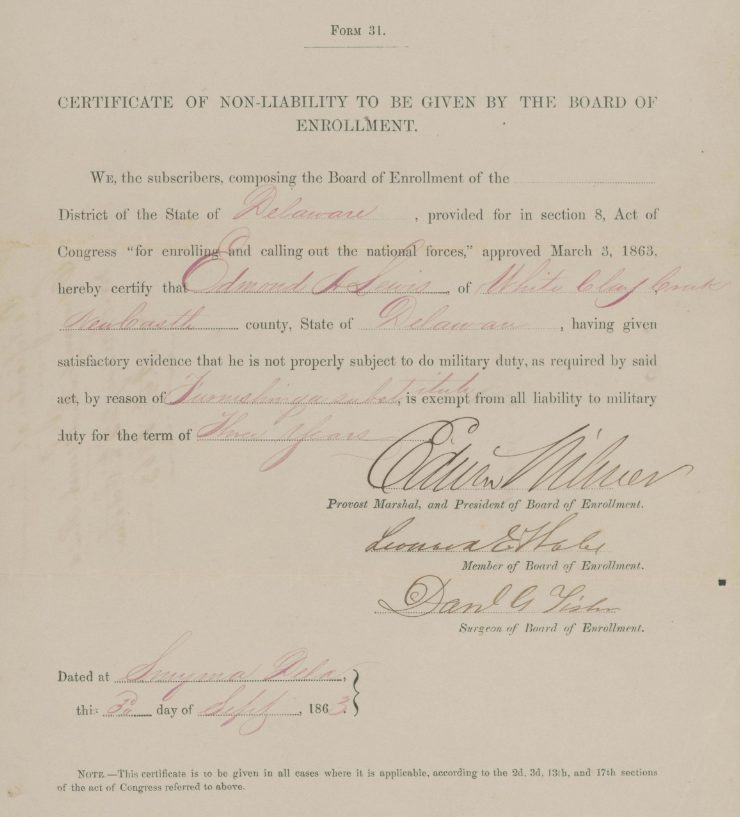 FORM 31.
CERTIFICATE OF NON-LIABILITY TO BE GIVEN BY THE BOARD OF
ENROLLMENT.
WE, the subscribers, composing the Board of Enrollment of the
District of the State of Delaware, provided for in section 8, Act of
Congress "for enrolling and calling out the national forces," approved March 3, 1863,
hereby certify that Edmond A Lewis, of White Clay Creek
New Castle county, State of Delaware, having given
satisfactory evidence that he is not properly subject to do military duty, as required by said
act, by reason of Furnishing a substitute, is exempt from all liability to military
duty for the term of Three Years
Edwin Wilmer
Provost Marshal, and President of Board of Enrollment.
Leonard E Wales
Member of Board of Enrollment.
Danl G Fisher
Surgeon of Board of Enrollment.
Dated at Smyrna Dela,
this day of Sept, 1863.
NOTE.—This certificate is to be given in all cases where it is applicable, according to the 2d, 3d, 13th, and 17th sections
of the act of Congress referred to above.